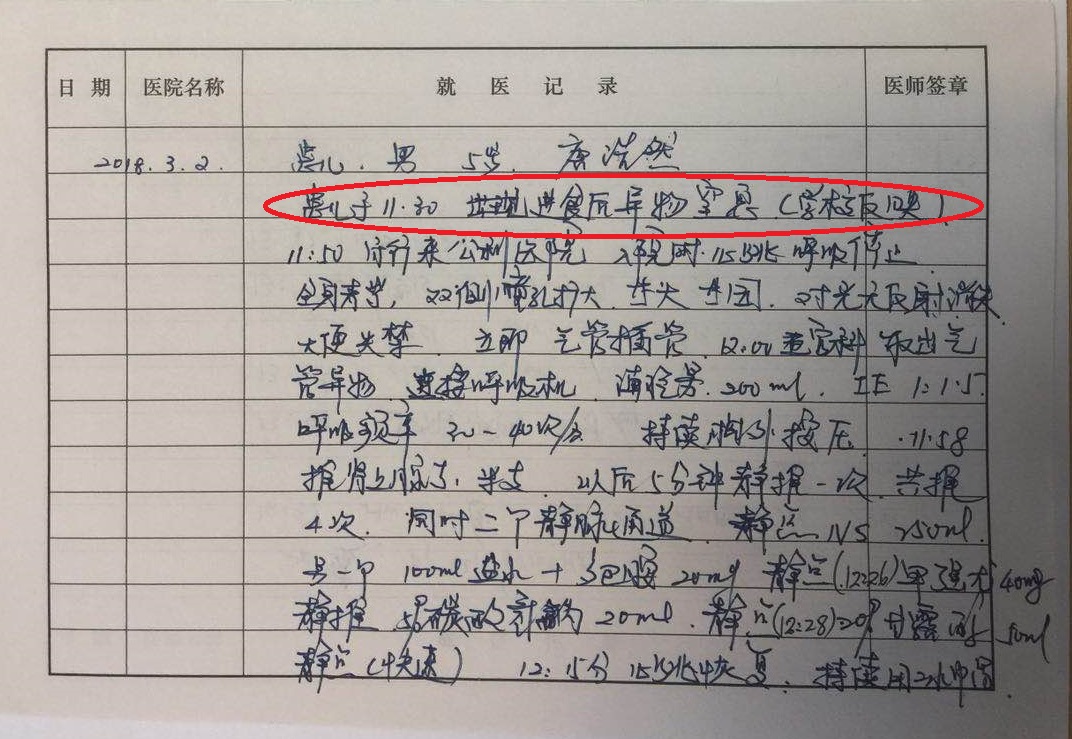 日 期 医院名称 就 医 记 录 医师签章
2018.3.2. 患儿. 男 5岁. 唐浩然
患儿于11.30 出现进食后异物窒息(学校反映)
11:50 行来公利医院 入院时.心跳 呼吸停止
全身青紫, 双侧瞳孔扩大 对光反射消失
大便失禁. 立即 气管插管. 12.00 取出气
管异物 连接呼吸机 潮气量.200ml. IE 1:1.5
呼吸频率 30-40次/分 持续胸外按压 .11.58
推肾上腺素. 半支. 以后5分钟静推一次. 共推
4次. 同时二个静脉通道. 静点 NS 250ml.
另一个 100ml盐水+多巴胺20mg 静点(12:26)甲强龙40mg
静推 5%碳酸氢钠20ml. 静点(12:28)20%甘露醇 50ml
静点(快速) 12:15分 心跳恢复. 持续用冰